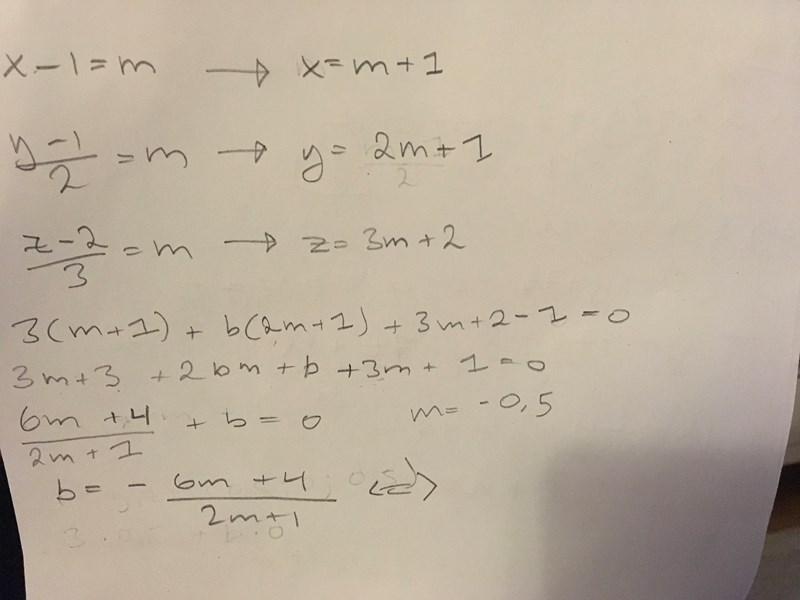 x - 1 = m → x = m + 1
(y - 1)/2 = m → y = 2m + 1
(z - 2)/3 = m → z = 3m + 2
3(m+1) + b(2m+1) + 3m+2-1 = 0
3m+3 + 2bm + b + 3m + 1 = 0
(6m + 4)/(2m + 1) + b = 0 m = -0,5
b = - (6m + 4)/(2m+1) <=>